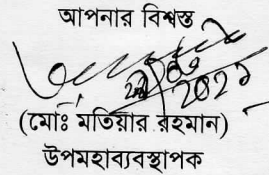 আপনার বিশ্বস্ত
2021
(মোঃ মতিয়ার রহমান)
উপমহাব্যবস্থাপক